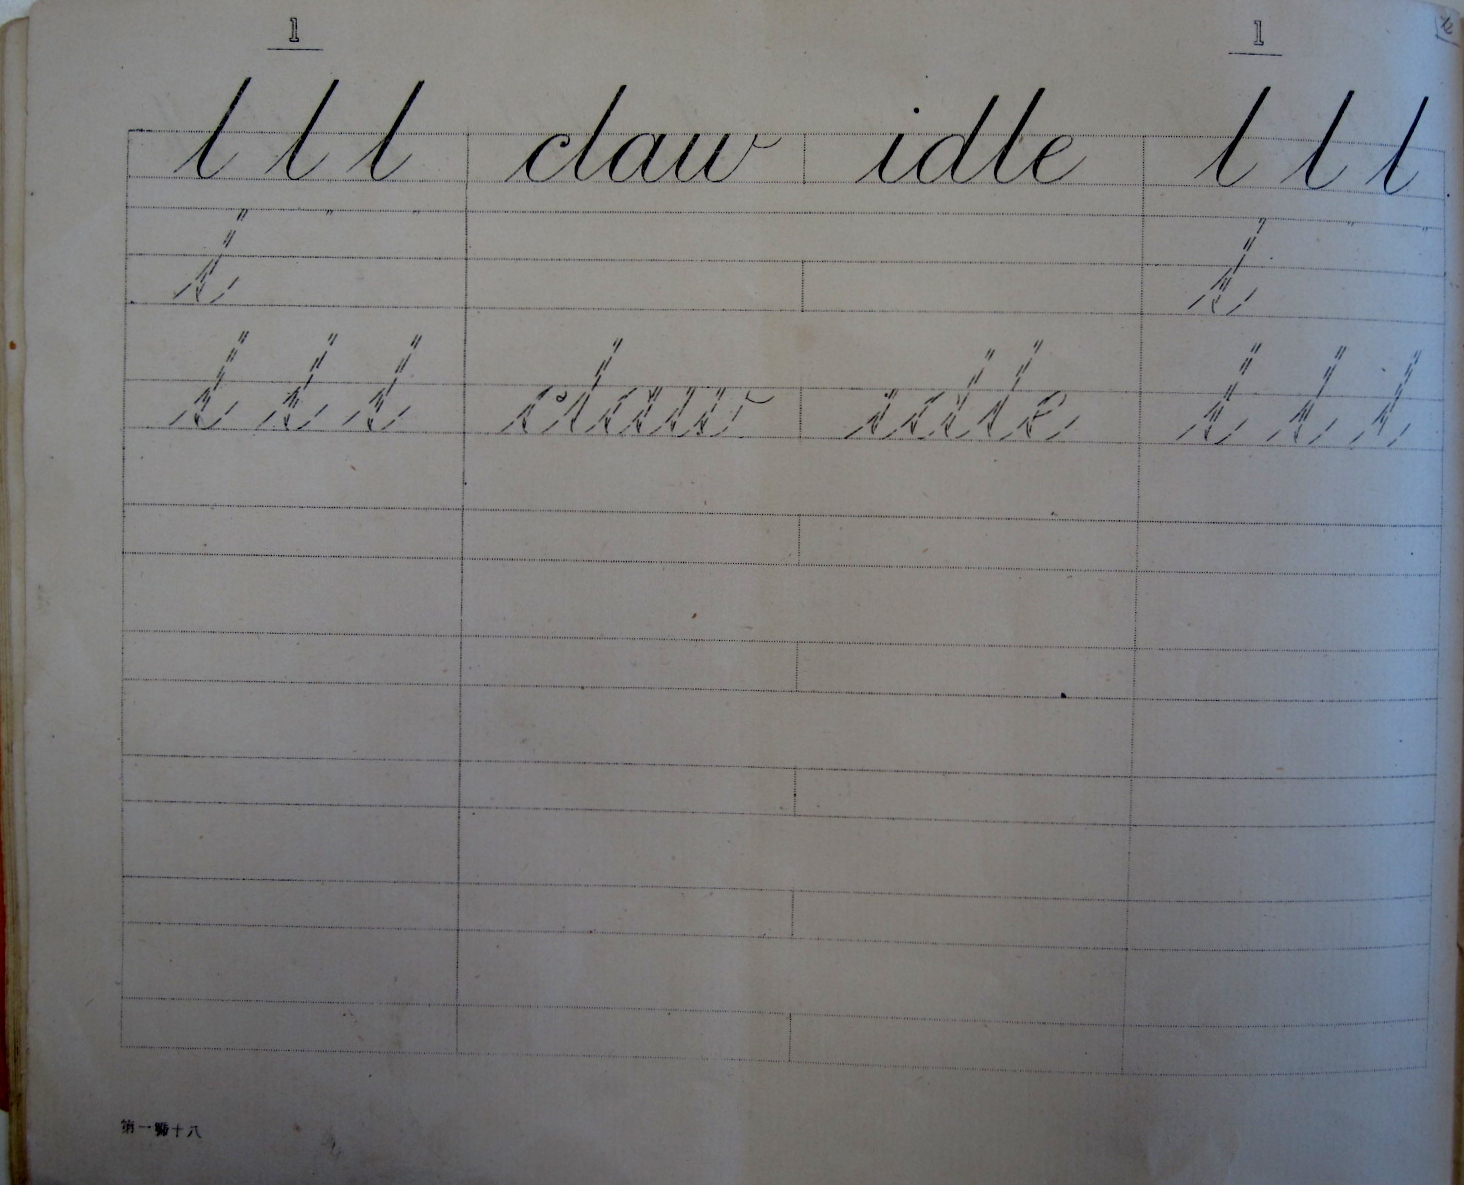 l l
l l l claw idle l l l
l l
l l l claw idle l l l
第一號十八